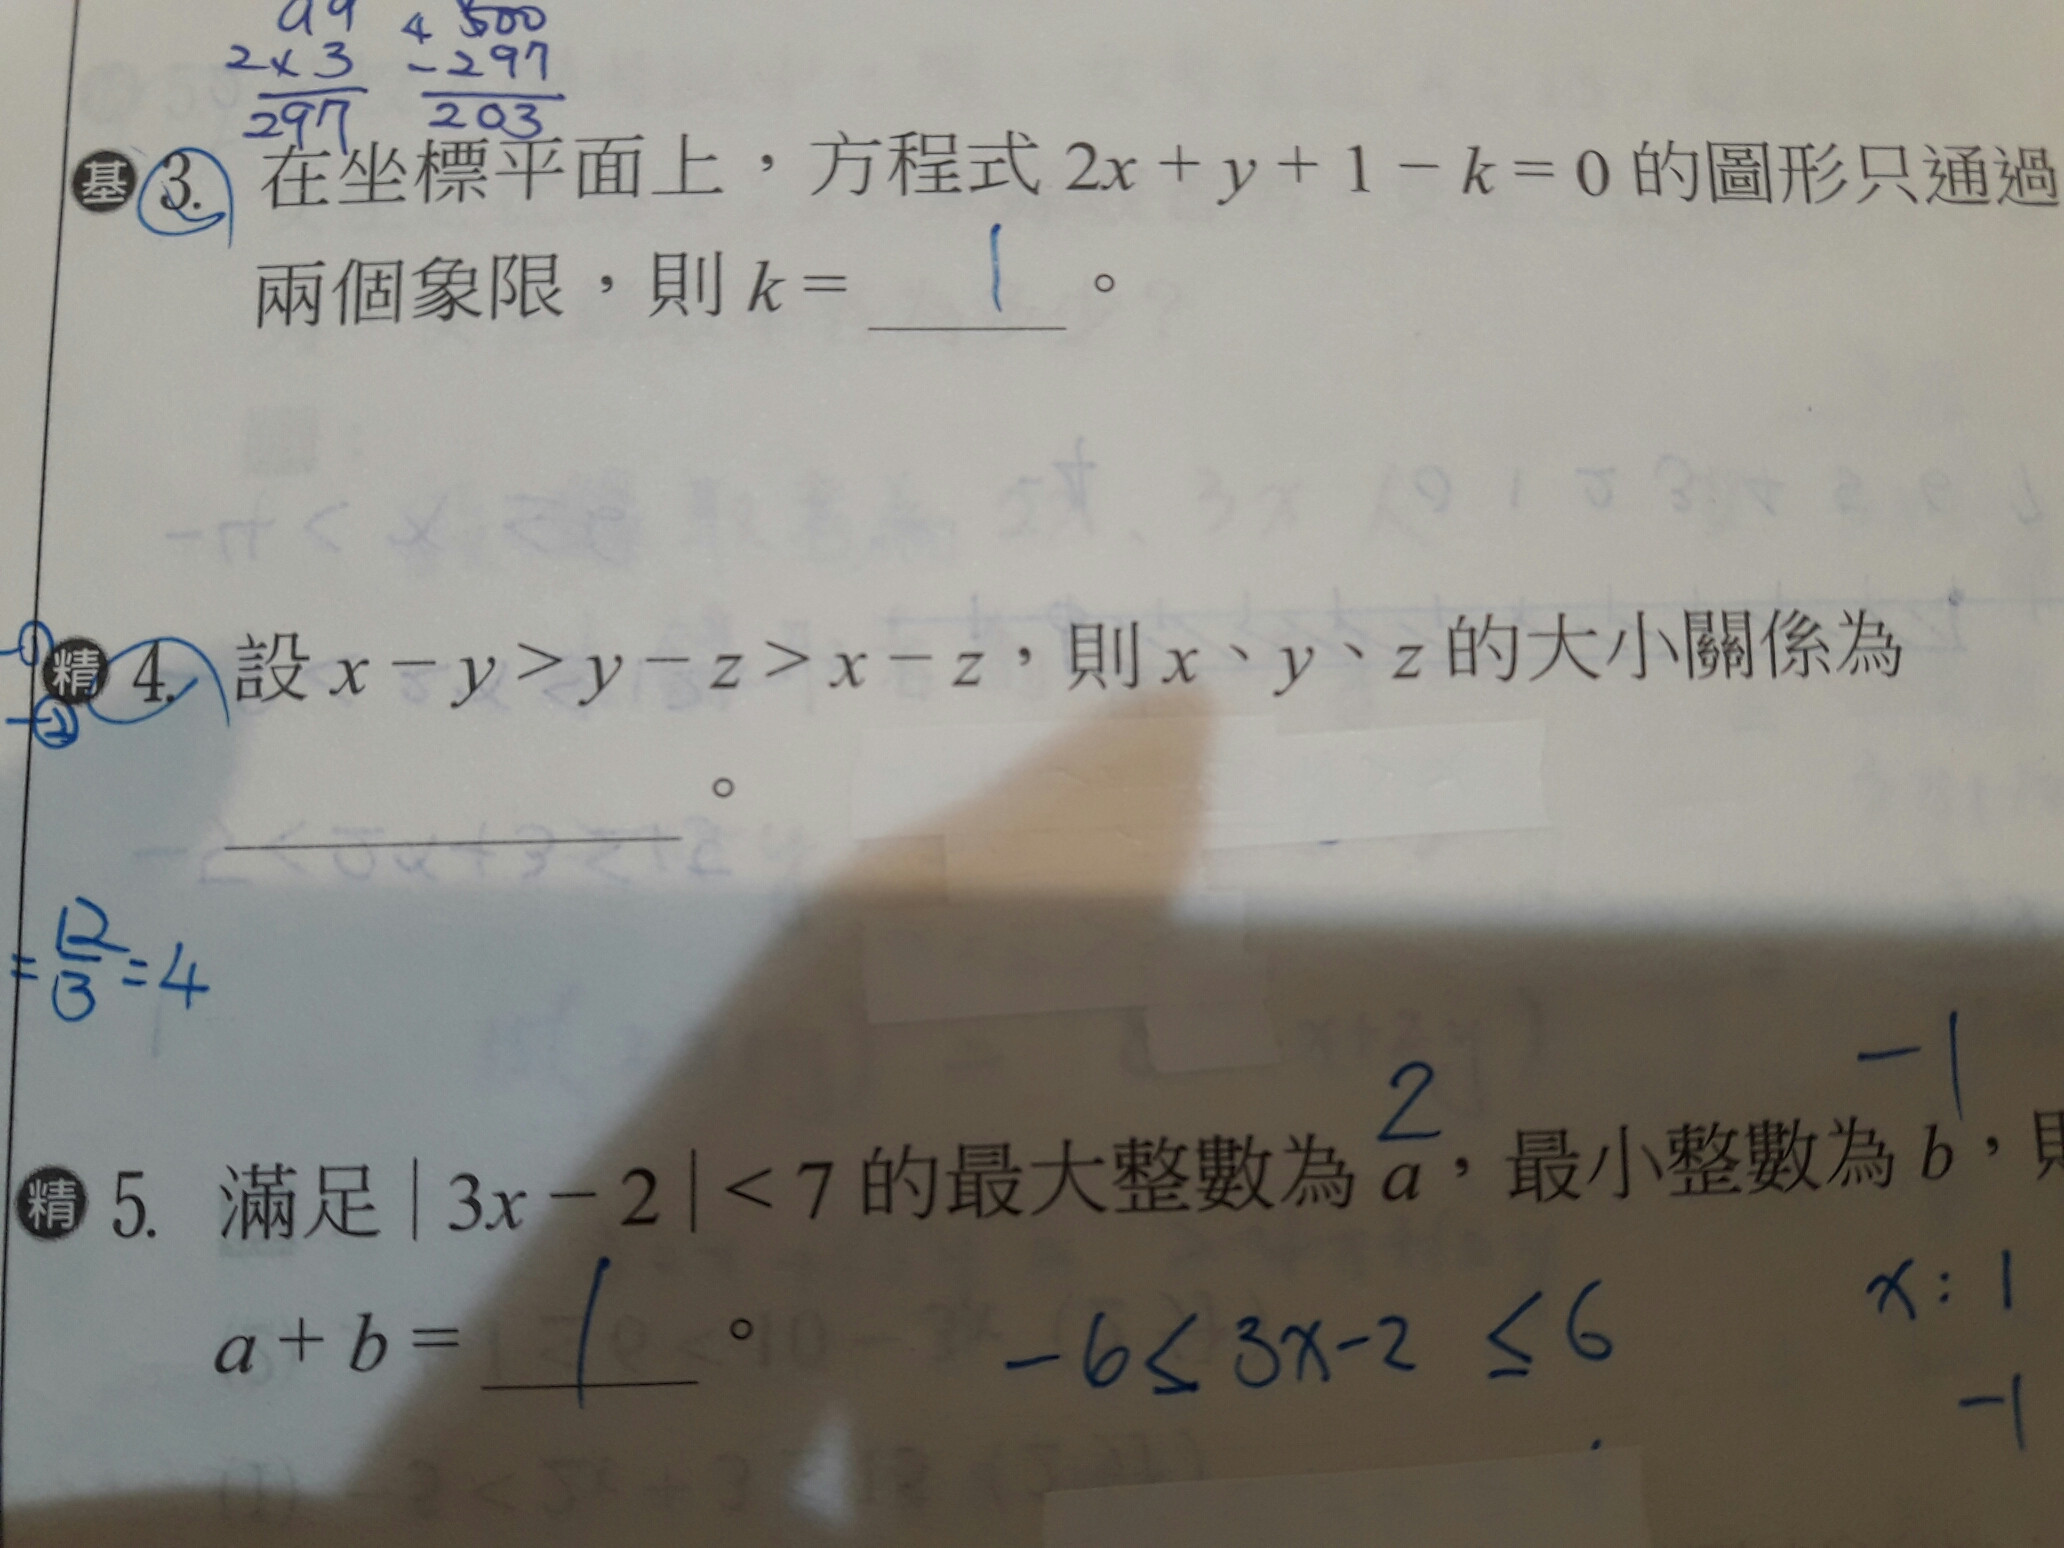 99 4 500
2 x 3 - 297
297 203
基 3. 在坐標平面上，方程式 2x + y + 1 - k = 0 的圖形只通過
兩個象限，則 k = 1 。
精 4. 設 x - y > y - z > x - z，則 x、y、z 的大小關係為
。
= 12/3 = 4
2 -1
精 5. 滿足 | 3x - 2 | < 7 的最大整數為 a，最小整數為 b，則
a + b = 1 。 -6 ≤ 3x-2 ≤ 6 x : 1
-1